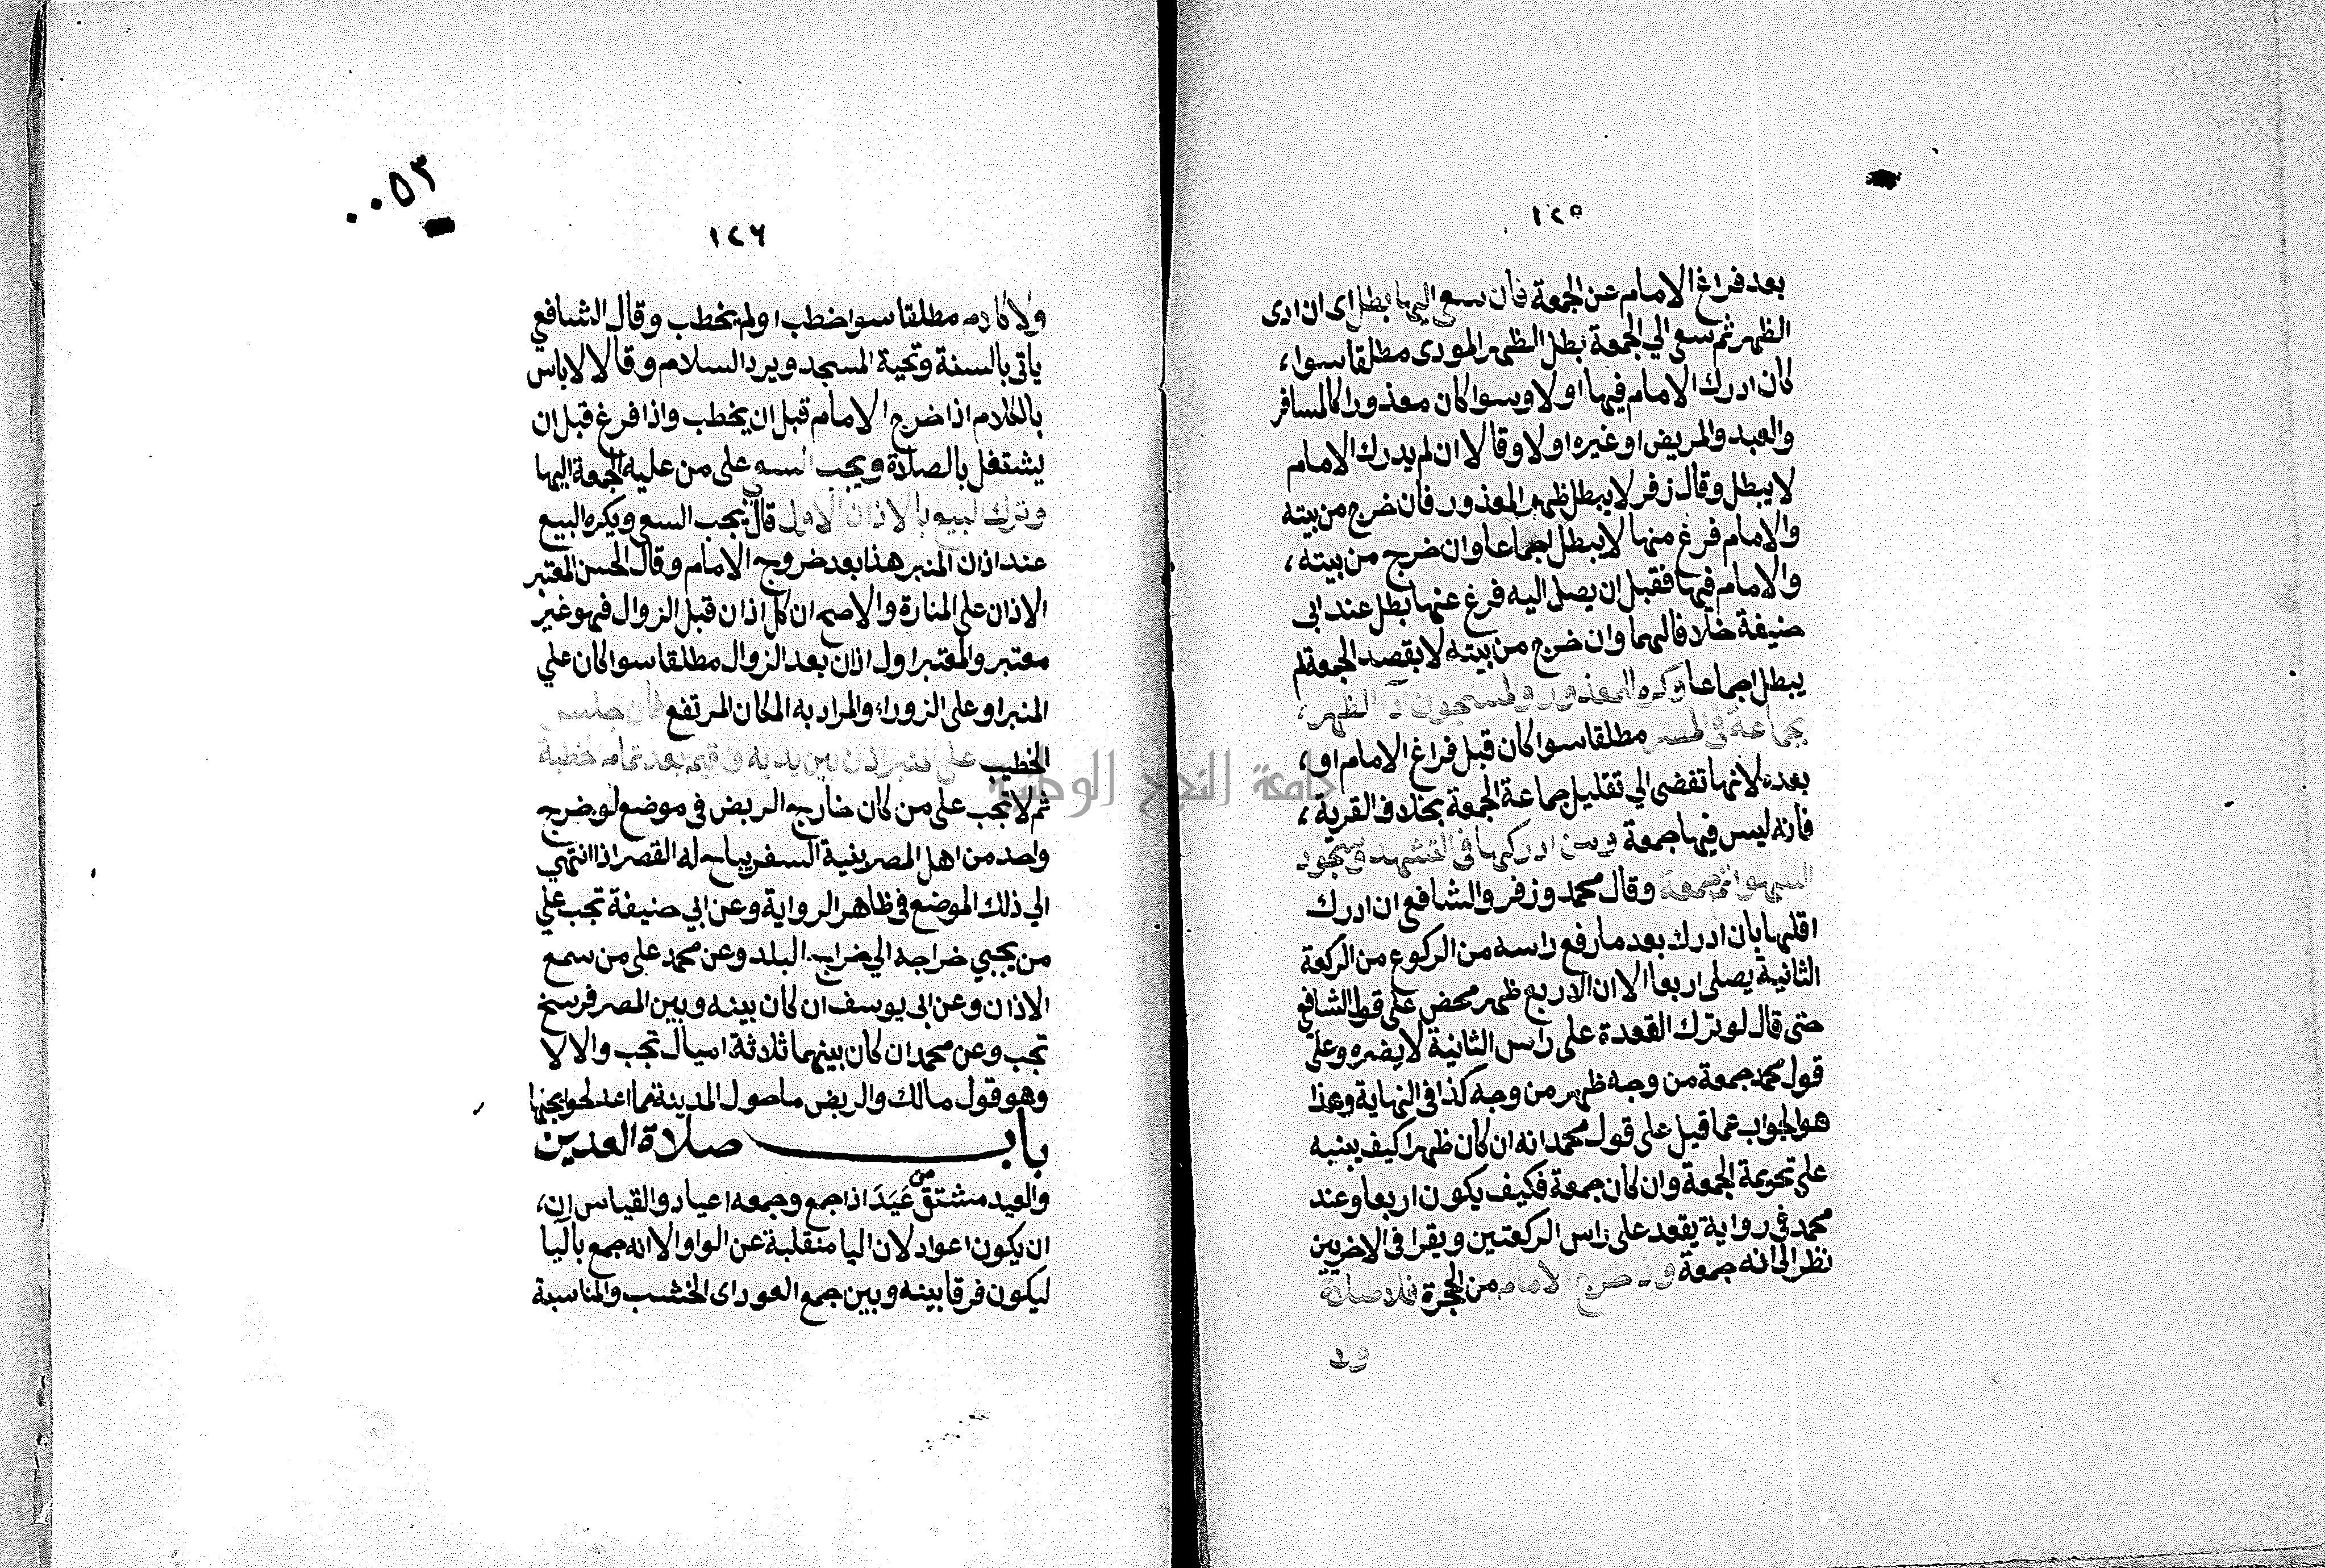 ١٢٥
بعد فراغ الامام عن الجمعة فان سعى اليها بطل اى ان ادى
الظهر ثم سعى الي الجمعة بطل الظهر المودى مطلقا سوا،
كان ادرك الامام فيها اولا وسوا كان معذورا كالمسافر
والعبد والمريض او غيره اولا وقالا ان لم يدرك الامام
لا يبطل وقال زفر لا يبطل ظهر المعذور فان خرج من بيته
والامام فرغ منها لا يبطل اجماعا وان خرج من بيته،
والامام فيها فقبل ان يصل اليه فرغ عنها بطل عند ابى
حنيفة خلافا لهما وان خرج من بيته لا بقصد الجمعة لم
يبطل اجماعا وكره للمعذور والمسجون ادآ الظهر،
بجماعة في المصر مطلقا سوا كان قبل فراغ الامام او،
بعده لانها تفضى الي تقليل جماعة الجمعة بخلاف القرية،
فانه ليس فيها جمعة ومن ادركها في التشهد او سجود
السهو اتم جمعة وقال محمد وزفر والشافعى ان ادرك
اقلها بان ادرك بعد ما رفع راسه من الركوع من الركعة
الثانية يصلى اربعا الا ان الاربع ظهر محض على قول الشافعى
حتى قال لو ترك القعدة على راس الثانية لا يضره وعلى
قول محمد جمعة من وجه ظهر من وجه كذا في النهاية وهذا
هو الجواب عما قيل على قول محمد انه ان كان ظهرا كيف يبنيه
على تحريمة الجمعة وان كان جمعة فكيف يكون اربعا وعند
محمد في رواية يقعد على راس الركعتين ويقرا في الاخريين
نظرا الى انه جمعة واذا خرج الامام من الحجرة فلا صلاة
ولا
٠٠٥٣
١٢٦
ولا كلام مطلقا سوا خطب او لم يخطب وقال الشافعي
ياتى بالسنة وتحية المسجد ويرد السلام وقالا لا باس
بالكلام اذا خرج الامام قبل ان يخطب واذا فرغ قبل ان
يشتغل بالصلاة ويجب السعى على من عليه الجمعة اليها
وترك البيع بالاذان الاول قال يجب السعى ويكره البيع
عند اذان المنبر هذا بعد خروج الامام وقال الحسن المعتبر
الاذان على المنارة والاصح ان كل اذان قبل الزوال فهو غير
معتبر والمعتبر اول اذان بعد الزوال مطلقا سوا كان علي
المنبر او على الزوراء والمراد به المكان المرتفع فان جلس
الخطيب على المنبر اذن بين يديه واقيم بعد تمام خطبة
ثم لا تجب على من كان خارج الربض في موضع لو خرج
واحد من اهل المصر بنية السفر يباح له القصر اذا انتهي
الي ذلك الموضع في ظاهر الرواية وعن ابي حنيفة تجب علي
من يجبي خراجه الي خراج البلد وعن محمد على من سمع
الاذان وعن ابى يوسف ان كان بينه وبين المصر فرسخ
تجب وعن محمد ان كان بينهما ثلاثة اميال تجب والا لا
وهو قول مالك والربض ما حول المدينة مما اعد لحوايجنها
باب صلاة العيدين
والعيد مشتق من عَيَدَ اذا جمع وجمعه اعياد والقياس ان،
ان يكون اعواد لان اليا منقلبة عن الواو الا انه جمع باليا
ليكون فرقا بينه وبين جمع العود اى الخشب والمناسبة
جامعة النجاح الوطنية